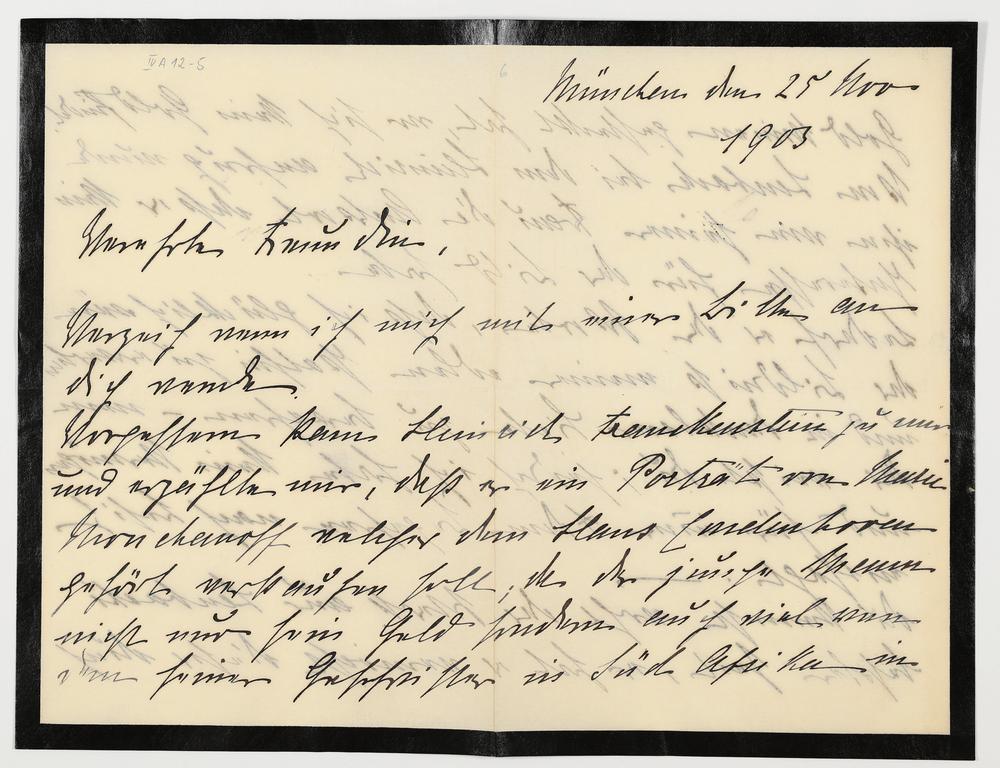 IV A 12-5
6
München den 25 Nov
1903
Verehrte Freundin,
Verzeih wenn ich mich mit einer Bitte an
dich wende.
Vorgestern kam Heinrich Franckenstein zu mir
und erzählte mir, daß er ein Porträt von Marie
Mouchanoff welches dem Hans Coudenhoven
gehört verkaufen soll, da der junge Mann
nicht nur sein Geld sondern auch viel von
dem seiner Geschwister in Süd Afrika in